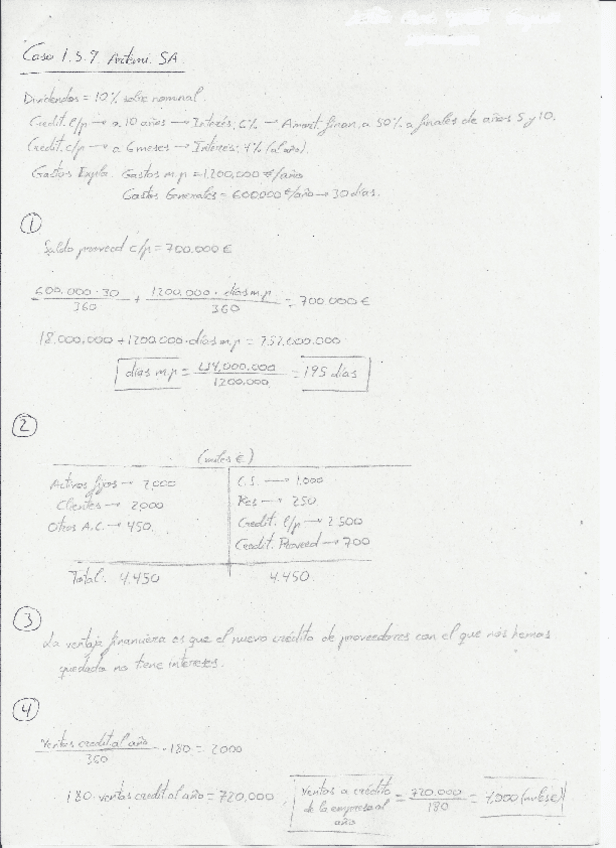 Caso 1.5.9. Artemi. SA.
Dividendos = 10% sobre nominal.
Credit. l/p → a 10 años → Interés; 6% → Amort. finan. a 50% a finales de años 5 y 10.
Credit. c/p → a 6 meses → Interés; 4% (al año).
Gastos Explo. Gastos m.p = 1.200.000 €/año
Gastos Generales = 600.000 €/año → 30 días.
①
Saldo proveed c/p = 700.000 €
600.000 · 30 / 360 + 1200.000 · días m.p / 360 = 700.000 €
18.000.000 + 1200.000 · días m.p = 252.000.000
días m.p = 234.000.000 / 1200.000 = 195 días
②
(miles €)
Activos fijos → 2,000 C.S. → 1.000
Clientes → 2,000 Res → 250
Otros A.C. → 450. Credit. l/p → 2.500
Credit. Proveed → 700
Total: 4.450 4.450.
③
La ventaja financiera es que el nuevo crédito de proveedores con el que nos hemos
quedado no tiene intereses.
④
Ventas credit. al año / 360 · 180 = 2000
180 · ventas credit al año = 720,000 ; Ventas a crédito de la empresa al año = 720.000 / 180 = 4,000 (miles €)